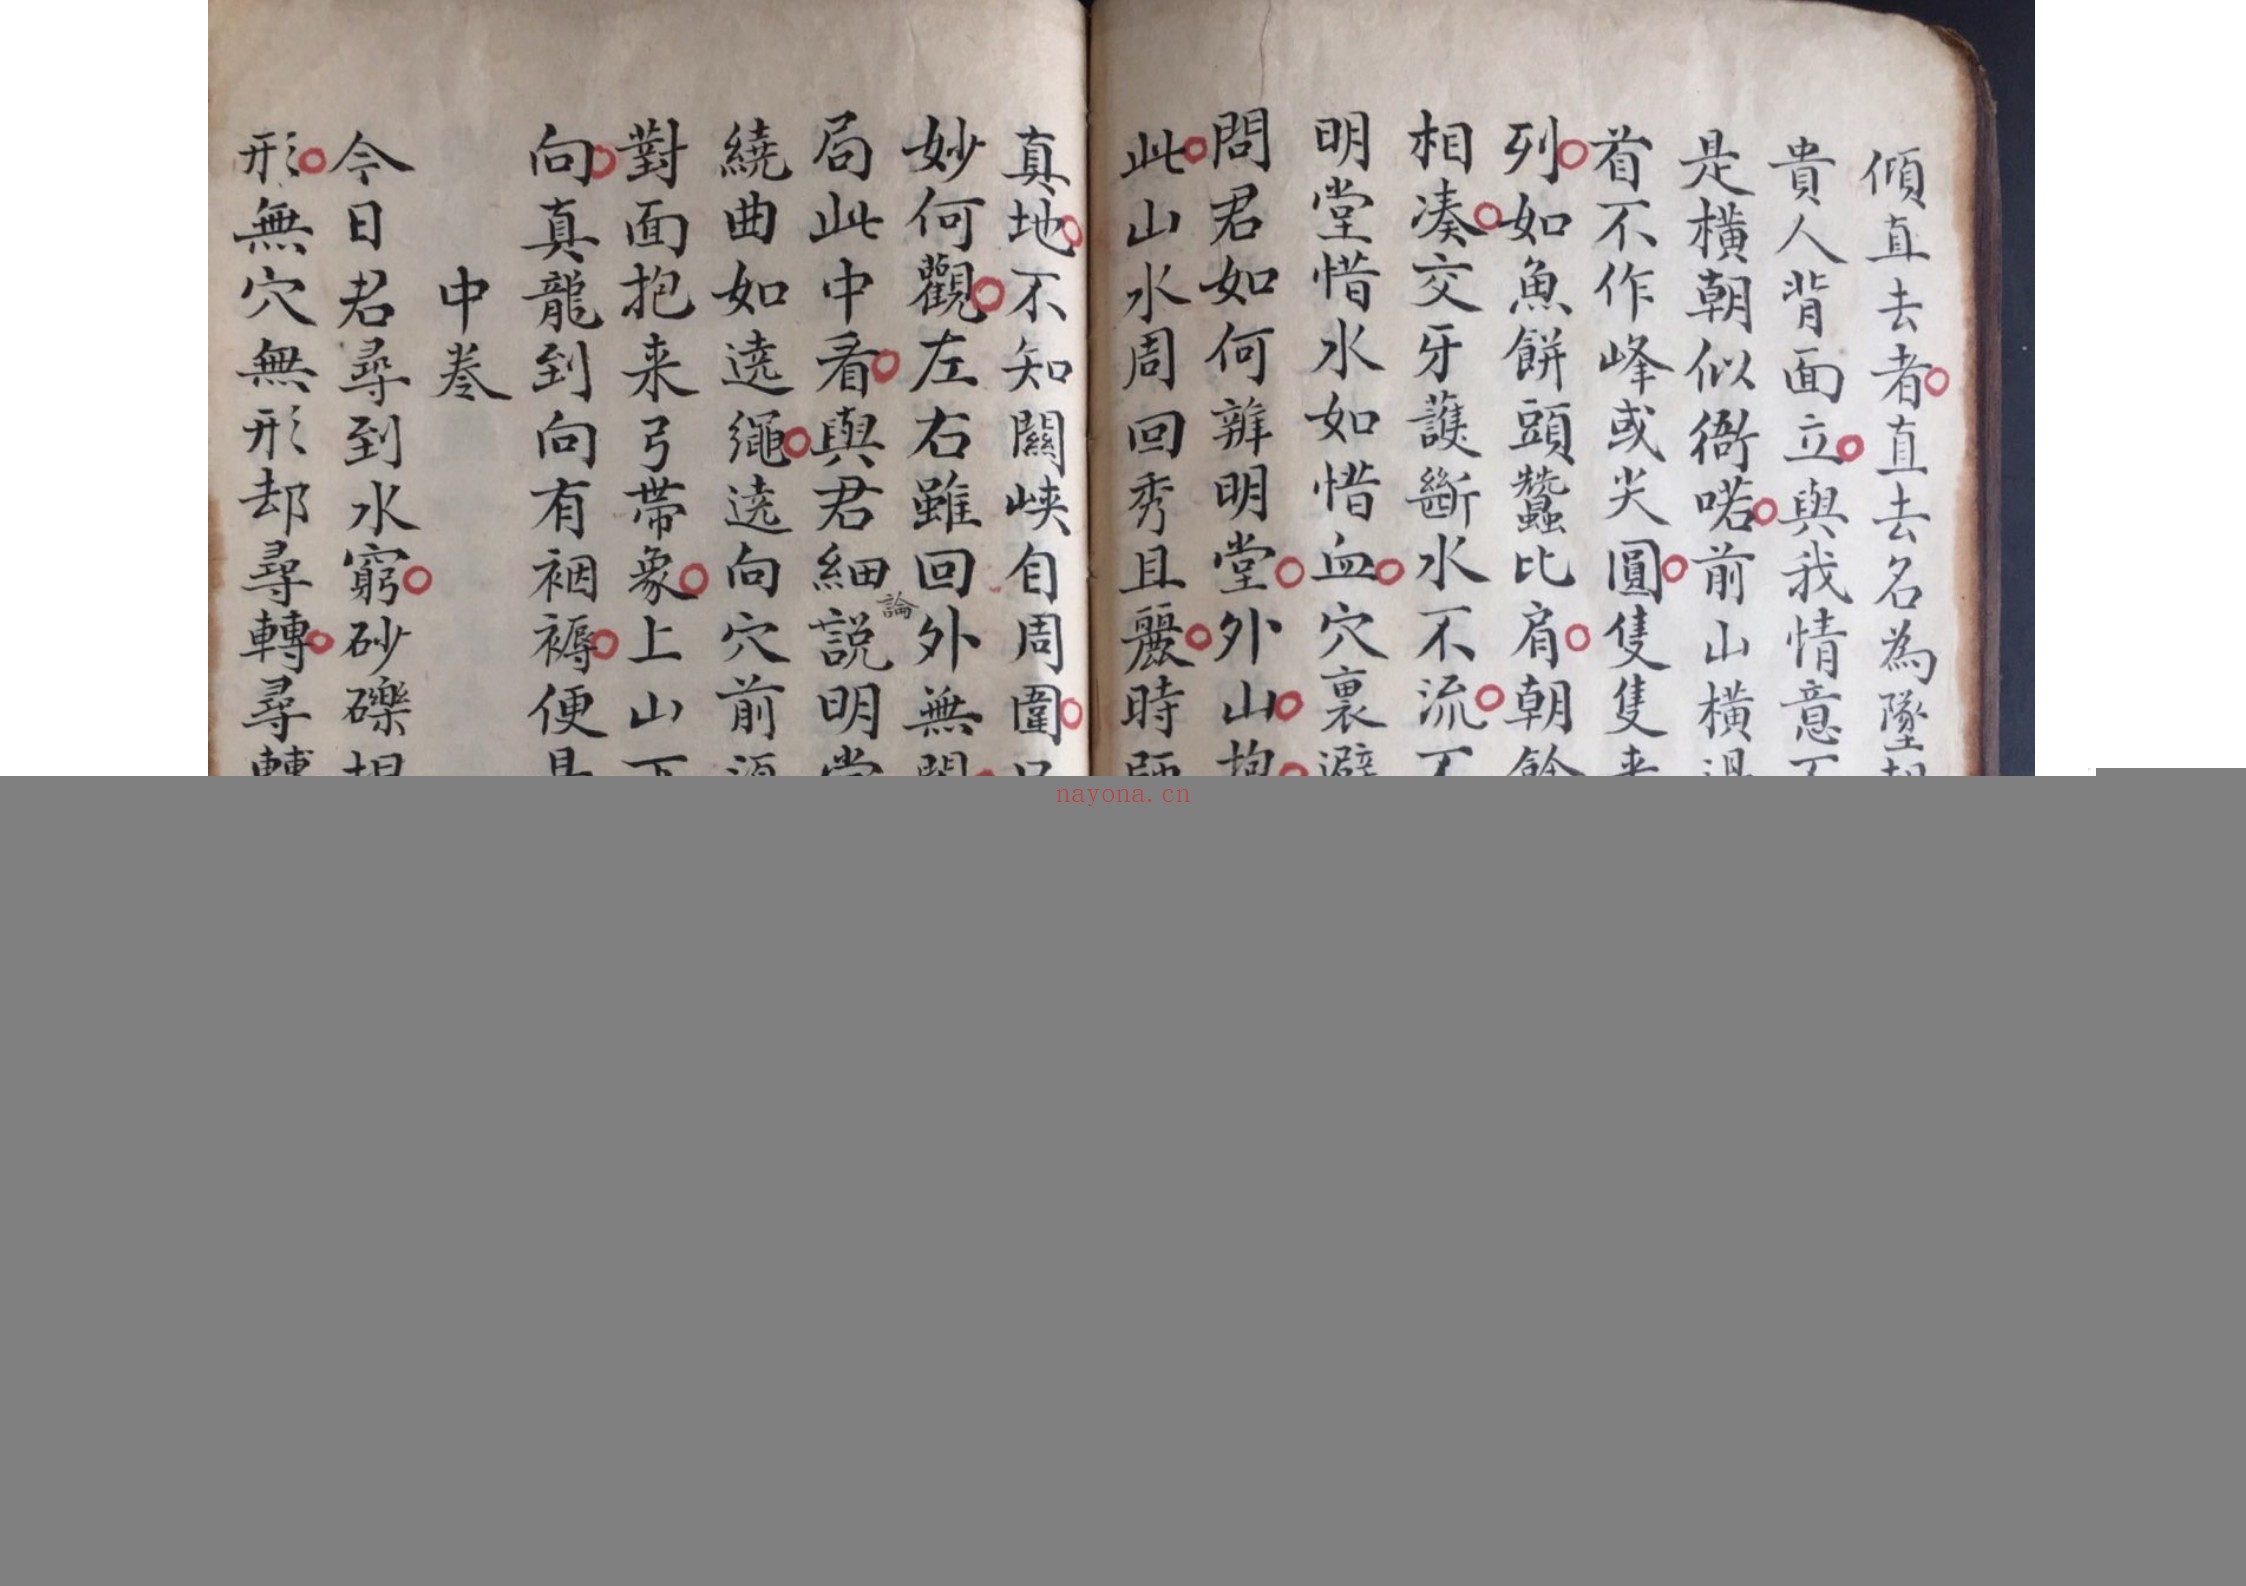 傾直去者直去名為墜
貴人背面立與我情意不
是橫朝似衙喏前山橫過
首不作峰或尖圓隻隻來
列如魚餅頭蠶比肩朝餘
相湊交牙護斷水不流不
明堂惜水如惜血穴裏避
問君如何辨明堂外山抱
此山水周回秀且麗時師
真地不知關峽自周圍只
妙何觀左右雖回外無關
局此中看與君細說明堂
論
繞曲如遶繩遶向穴前須
對面抱来弓帶象上山下
向真龍到向有裀褥便是
中卷
今日君尋到水窮砂礫坦
形無穴無形却尋轉尋轉
nayona.cn